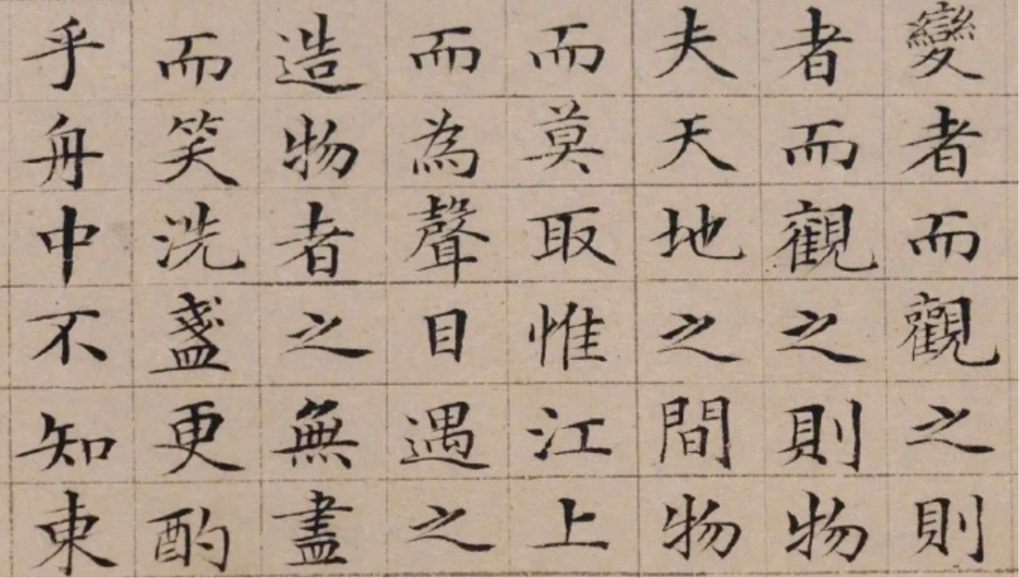 變者而觀之則
者而觀之則物
夫天地之間物
而莫取惟江上
而為聲目遇之
造物者之無盡
而笑洗盞更酌
乎舟中不知東